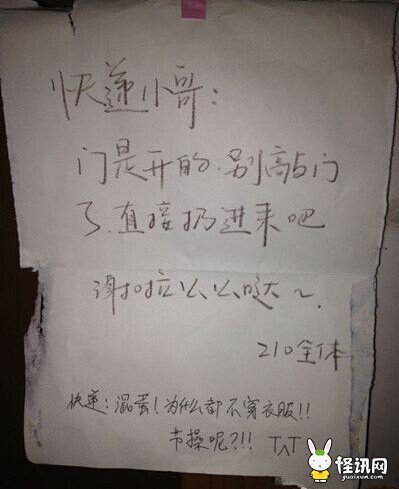 快递小哥：
门是开的.别敲门
了.直接扔进来吧
谢啦么么哒～
210全体
快递：混蛋！为什么都不穿衣服!!
节操呢?!! TAT
怪讯网
guaixun.com